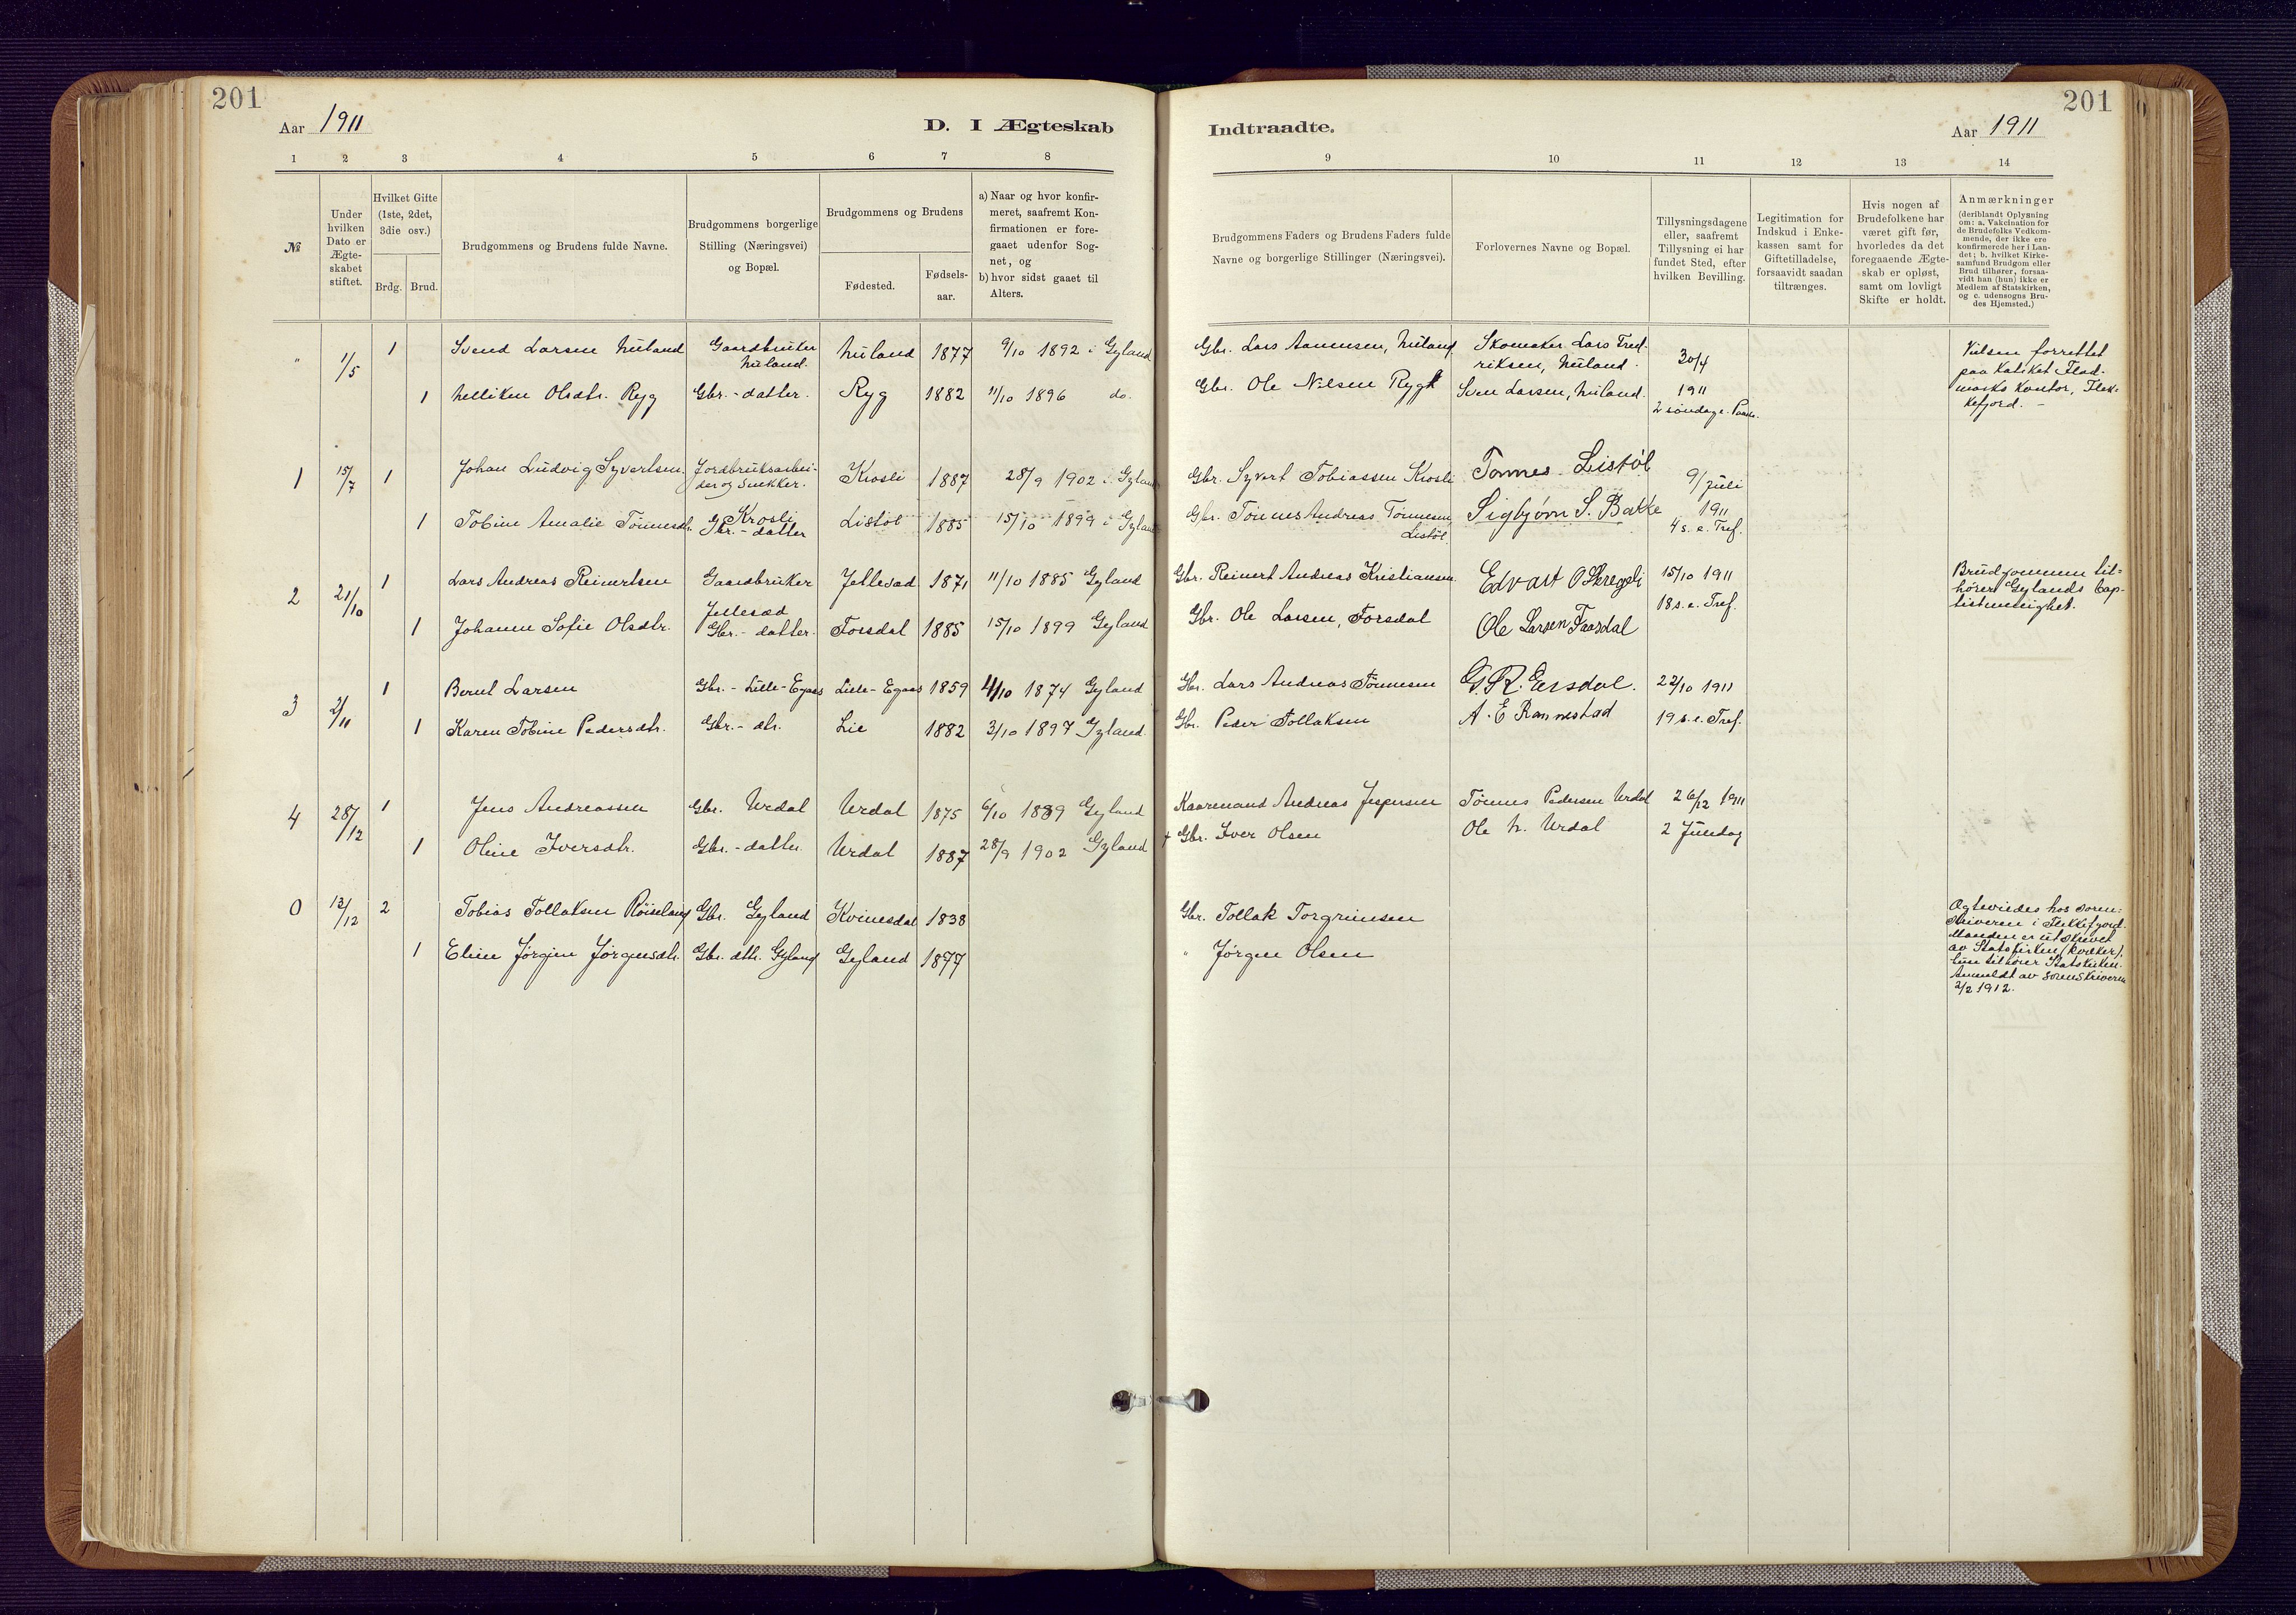 201
Aar 1911
D. I Ægteskab
1 2 3 4 5 6 7 8
№
Under hvilken Dato er Ægteskabet stiftet.
Hvilket Gifte (1ste, 2det, 3die osv.)
Brdg. Brud.
Brudgommens og Brudens fulde Navne.
Brudgommens borgerlige Stilling (Næringsvei) og Bopæl.
Brudgommens og Brudens
Fødested.
Fødsels-aar.
a) Naar og hvor konfir-
meret, saafremt Kon-
firmationen er fore-
gaaet udenfor Sog-
net, og
b) hvor sidst gaaet til
Alters.
" 1/5 1 Svend Larsen Nuland Gaardbruker Nuland. Nuland 1877 9/10 1892 i Gyland
1 Helliken Olsdtr. Ryg Gbr.-datter. Ryg 1882 11/10 1896 do.
1 15/7 1 Johan Ludvig Syvertsen Jordbruksarbei-
der og Snekker. Krosli Krosli 1887 28/9 1902 i Gyland
1 Tobine Amalie Tønnesdtr. Gbr.-datter Listøl 1885 15/10 1899 i Gyland
2 21/10 1 Lars Andreas Reinertsen Gaardbruker Jellesad Jellesad 1871 11/10 1885 Gyland
1 Johanne Sofie Olsdtr. Gbr.-datter. Forsdal 1885 15/10 1899 Gyland
3 2/11 1 Bernt Larsen Gbr.-Lille-Egaas Lille-Egaas 1859 4/10 1874 Gyland
1 Karen Tobine Pedersdtr. Gbr.-dtr. Lie 1882 3/10 1897 Gyland
4 28/12 1 Jens Andreassen Gbr. Urdal Urdal 1875 6/10 1889 Gyland
1 Oline Iversdtr. Gbr.-datter Urdal 1887 28/9 1902 Gyland
0 13/12 2 Tobias Tollaksen Røiseland Gbr. Gyland Kvinesdal 1838
1 Eline Jørgine Jørgensdtr. Gbr. dtr. Gyland Gyland 1877
201
Indtraadte.
Aar 1911
9 10 11 12 13 14
Brudgommens Faders og Brudens Faders fulde
Navne og borgerlige Stillinger (Næringsvei).
Forlovernes Navne og Bopæl.
Tillysningsdagene
eller, saafremt
Tillysning ei har
fundet Sted, efter
hvilken Bevilling.
Legitimation for
Indskud i Enke-
kassen samt for
Giftetilladelse,
forsaavidt saadan
tiltrænges.
Hvis nogen af
Brudefolkene har
været gift før,
hvorledes da det
foregaaende Ægte-
skab er opløst,
samt om lovligt
Skifte er holdt.
Anmærkninger
(deriblandt Oplysning
om: a. Vakcination for
de Brudefolks Vedkom-
mende, der ikke ere
konfirmerede her i Lan-
det; b. hvilket Kirke-
samfund Brudgom eller
Brud tilhører, forsaa-
vidt han (hun) ikke er
Medlem af Statskirken,
og c. udensogns Bru-
des Hjemsted.)
Gbr. Lars Aanensen, Nuland
Skomaker Lars Fred-
riksen, Nuland.
30/4
1911
2 søndag e. Paaske.
Vielsen forrettet
paa Katsket Flad-
marks Kontor, Flek-
kefjord.
Gbr. Ole Nilsen Ryg
Sven Larsen, Nuland.
Gbr. Syvert Tobiassen Krosli
Tønnes Listøl
9/juli
1911
4 s. e. Tref.
Gbr. Tønnes Andreas Tønnesen
Listøl.
Sigbjørn S. Bakke
Gbr. Reinert Andreas Kristiansen
Edvart O Skregeli
15/10 1911
18 s. e. Tref.
Brudgommen til-
hører Gylands Bap-
tistmenighet.
Gbr. Ole Larsen, Forsdal
Ole Larsen Faasdal
Gbr. Lars Andreas Tønnesen
G. R. Eersdal.
22/10 1911
Gbr. Peder Tollaksen
A. E Rannestad
19 s. e. Tref.
Kaarmand Andreas Jespersen
Tønnes Pedersen Urdal
26/12 1911
+ Gbr. Iver Olsen
Ole N. Urdal
2 Juledag
Gbr. Tollak Torgrimsen
" Jørgen Olsen
Ægteviedes hos Soren-
skriveren i Flekkefjord.
Manden er utskrevet
av Statskirken (kvæker),
hun tilhører Statskirken.
Anmeldt av Sorenskriveren
2/2 1912.